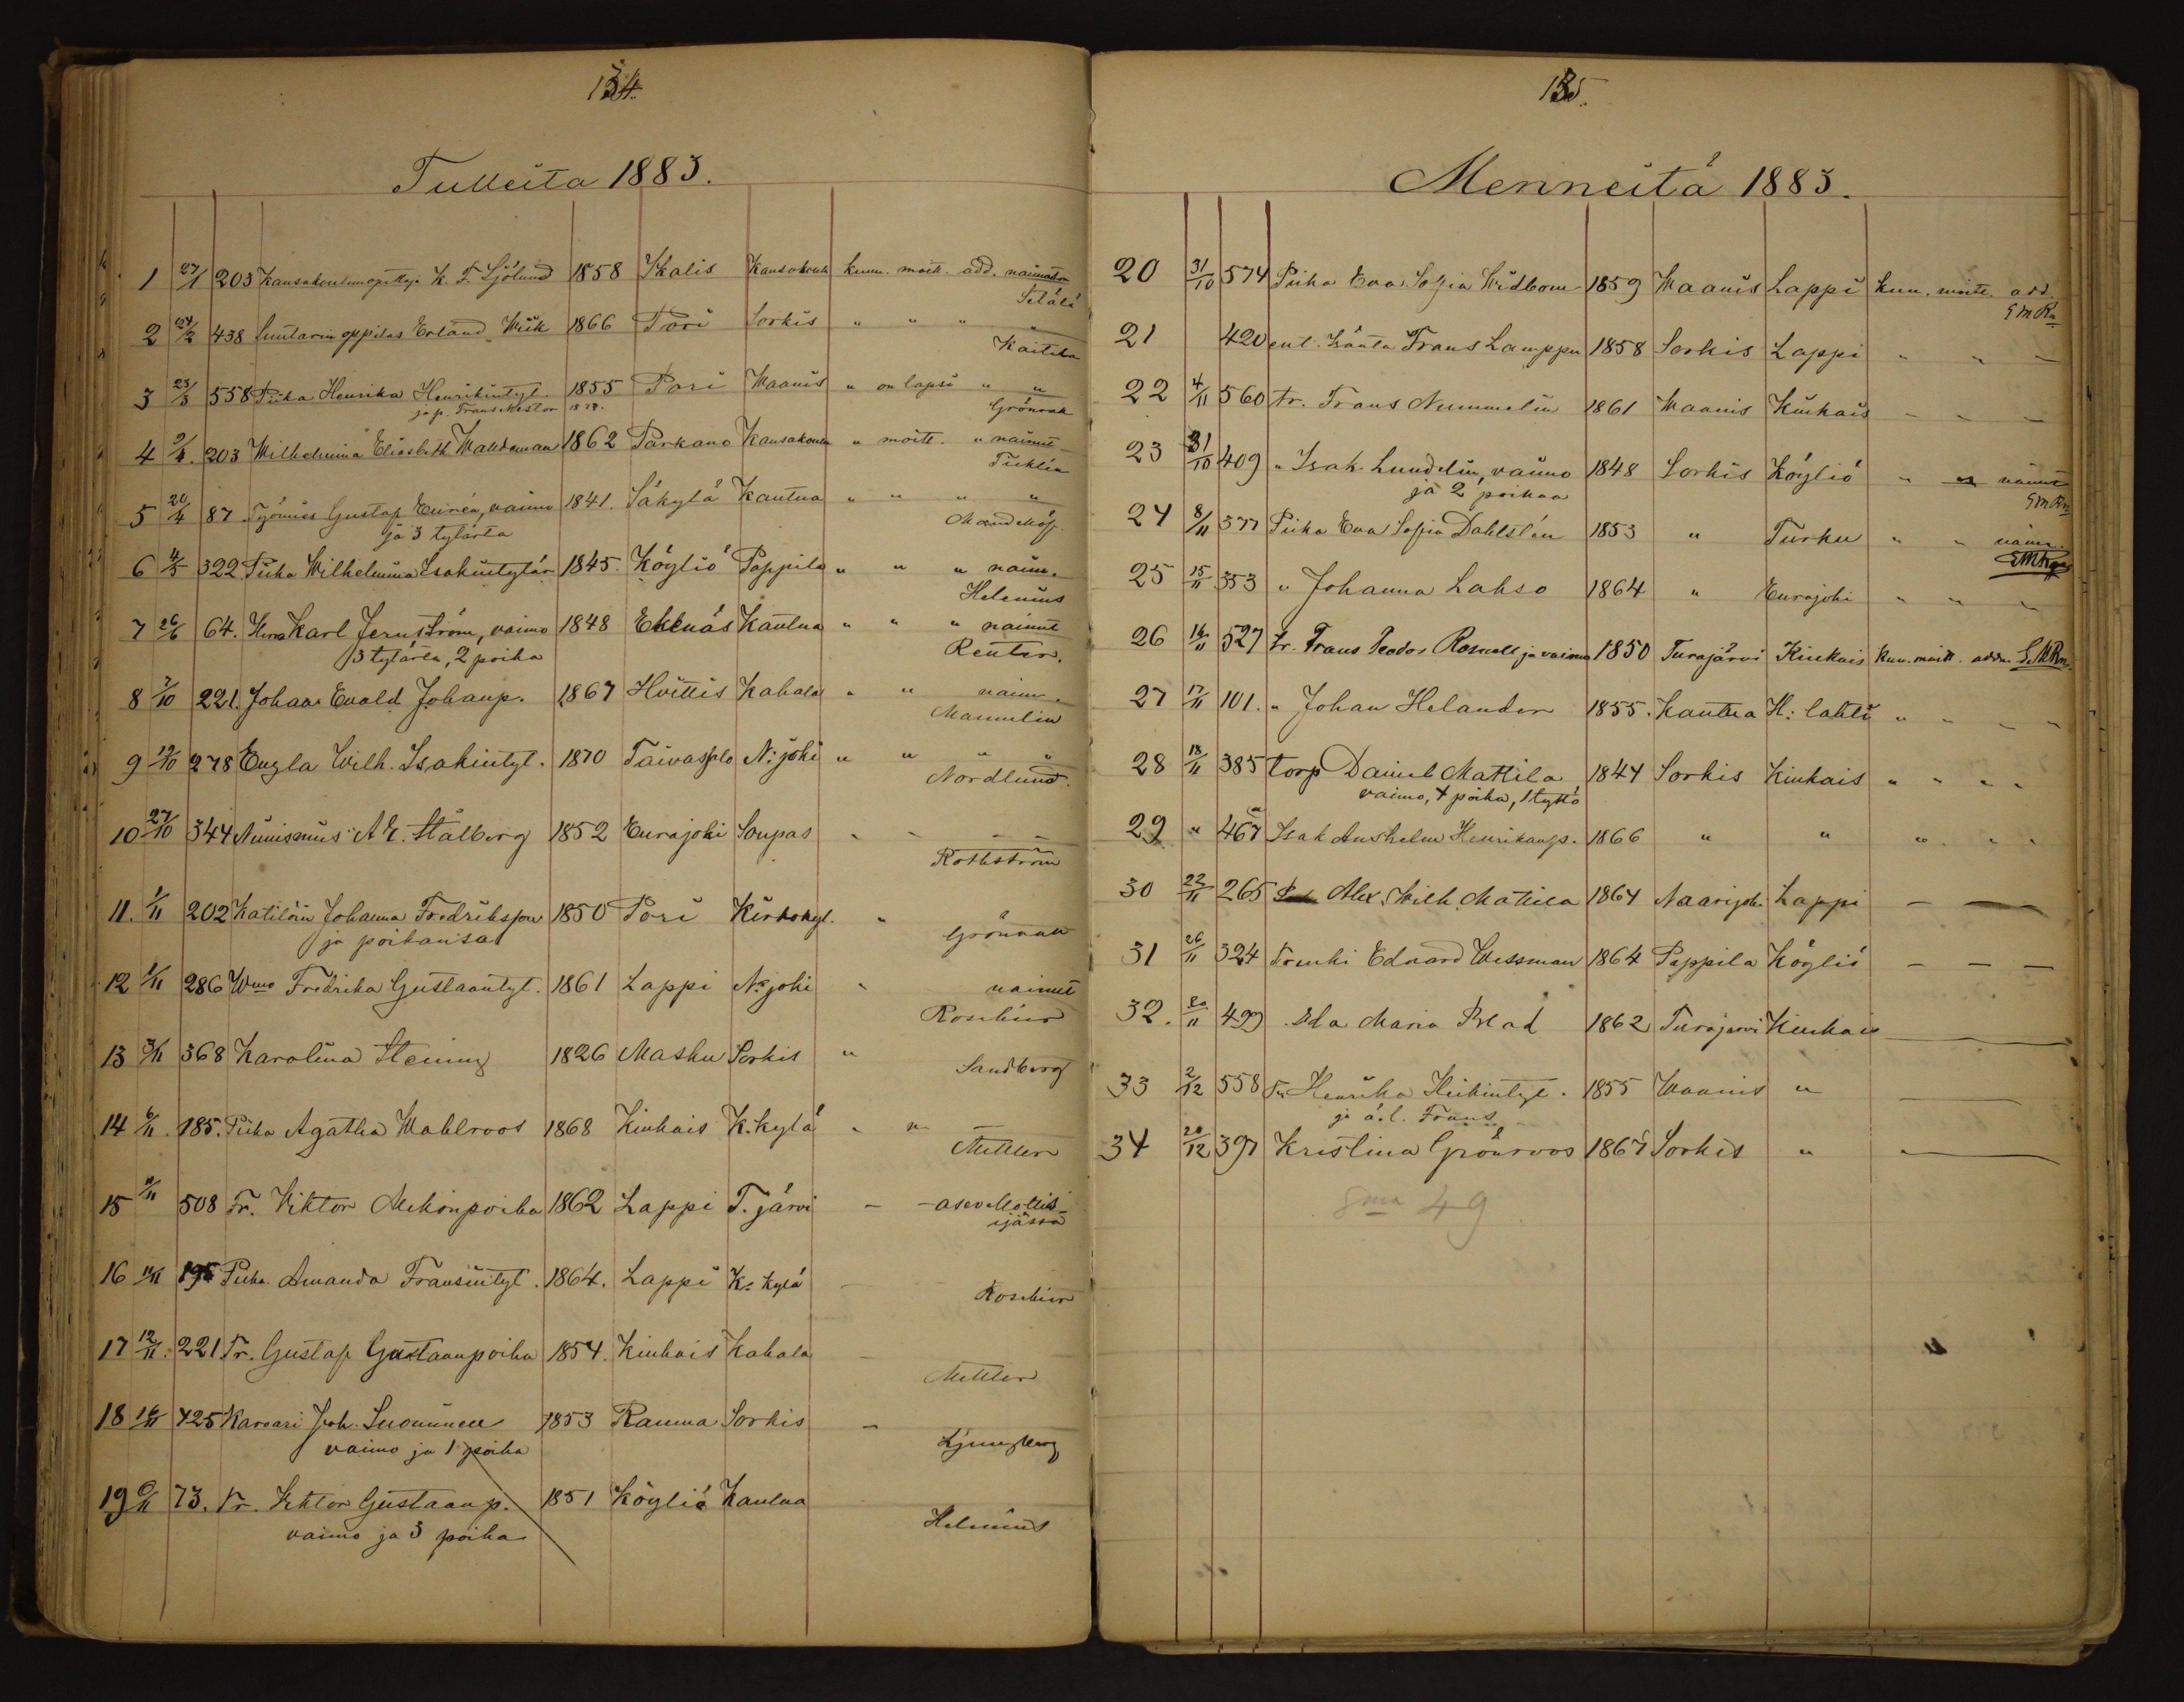 134.
Tulleita 1883.
1 27/1 203 Kansakoulunopettaja K. F. Sjölund 1858 Ikalis Kansakoulu kunn. moitt. add. naimaton
Selälä
2 24/2 438 Suutarin oppilas Erland Wiik 1866 Pori Sorkis " " "
Kaitila
3 23/3 558 Piika Henrika Henrikintyt. 1855 Pori Waanis " on lapsi " "
ja p. Frans Nestor 1878. Grönvall
4 203 Wilhelmina Eliasbeth Waldeman 1862 Parkano Kansakoulu " moitt. " naimut
5 20/4 87. Työmies Gustaf Eurén, vaimo 1841. Säkylä Kautua " " " "
ja 3 tytärtä
6 4/5 322 Piika Wilhelmina Isakintytär 1845. Köyliö Pappila " " " naim.
Helenius
7 26/6 64. Karl Jernström, vaimo 1848 Ekknäs Kautua " " " naimut
3 tytärtä, 2 poika Renter.
8 7/10 221. Johan Evald Johanp. 1867 Hvittis Kahala " " naim.
Mannelin
9 278 Engla Wilh. Isakintyt. 1870 Taivassalo N:joki " " " "
Nordlund.
10 27/10 344 A E. Stålberg 1852 Eurajoki Soupas - - - -
Rothström
11. 1/11 202 Katilöin Johanna Fredriksson 1850 Pori Kirkokyl. "
ja poikansa Grönvall
12 1/11 286 Wmo Fredrika Gustaantyt. 1861 Lappi N:joki " naimut
Roschier
13 3/11 368 Karolina Stening 1826 Masku Sorkis "
Sandberg
14 6/11. 185. Piika Agatha Wahlroos 1868 Kiukais K.kylä " " -
Mittler
15 11/11 508 Tr. Viktor Mikonpoika 1862 Lappi T. järvi - - asevellollis-
ijässä
16 195 Piika. Amanda Fransintyt. 1864. Lappi K: kylä -
Roschier
17 12/11. 221 Tr. Gustaf Gustaanpoika 1854. Kiukais Kahala -
Mittler
18 16/11 425 Karvari Joh. Suominen 1853 Rauma Sorkis -
vaimo ja 1 poika Ljungberg
19 73. Tr. Viktor Gustaanp. 1851 Köyliö Kautua
vaimo ja 3 poika Helenius
135.
Menneitä 1883.
20 31/10 574 Piika Eva Sofia Widbom 1859 Waanis Lappi kun. moitt. add.
21 420 ent. Frans Lamppu 1858 Sorkis Lappi " " -
22 4/11 560 tr. Frans Nummelin 1861 Waanis Kiukais - - -
23 31/10 409 " Isak Lundelin, vaimo 1848 Sorkis Köyliö " " naimut
ja 2 poikaa
24 8/11 377 Piika Eva Sofia Dahlstén 1853 " Turku " " naim.
25 15/11 353 " Johanna Lahso 1864 " Eurajoki " " "
26 16/11 527 Tr. Frans Teodor Rosnell ja vaimo 1850 Turajärvi Kiukais kun. moitt. addm.
27 17/11 101. " Johan Helander 1855. Kautua H: lahti " " - -
28 18/11 385 torp Daniel Mattila 1844 Sorkis Kiukais " " " "
vaimo, 4 poika, 1 tyttö
29 " 467 Isak Anshelm Henrikanp. 1866 " " " " "
30 22/11 265 Alex. Wilh. Mattila 1864 Naarijoki Lappi - -
31 26/11 324 Trenki Edvard Wessman 1864 Pappila Köyliö - - -
32. 30/11 499 Ida Maria Blad 1862 Turajärvi Kiukais -
33 2/12 558 Henrika Heikintyt. 1855 Waanis " -
ja ä.l. Frans
34 20/12 397 Kristina Grönroos 1867 Sorkis " "
Sma 49